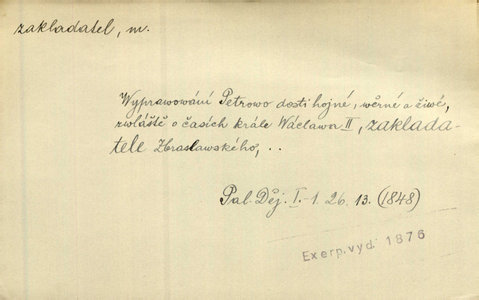 zakladatel, m.
Wyprawowání Petrowo dosti hojné, wěrné a žiwé,
zwláště o časích krále Wáclawa II, zaklada-
tele Zbraslawského, . .
Pal. Děj. I.-1. 26. 13. (1848)
Exerp. vyd. 1876